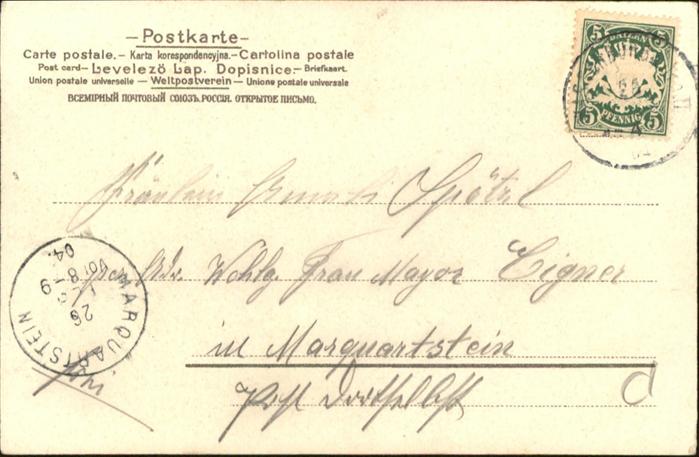 Postkarte
Carte postale. - Karta korespondencyjna. - Cartolina postale
Post card - Levelező Lap. Dopisnice. - Briefkaart.
Union postale universelle - Weltpostverein - Unione postale universale
ВСЕМІРНЫЙ ПОЧТОВЫЙ СОЮЗЪ. РОССІЯ. ОТКРЫТОЕ ПИСЬМО.
5 BAYERN 5
5 PFENNIG 5
Fräulein Spötzl
Wohlg. Frau Mayor Eigner
in Marquartstein
Post
MARQUARTSTEIN
26
9
Vor 8
04.